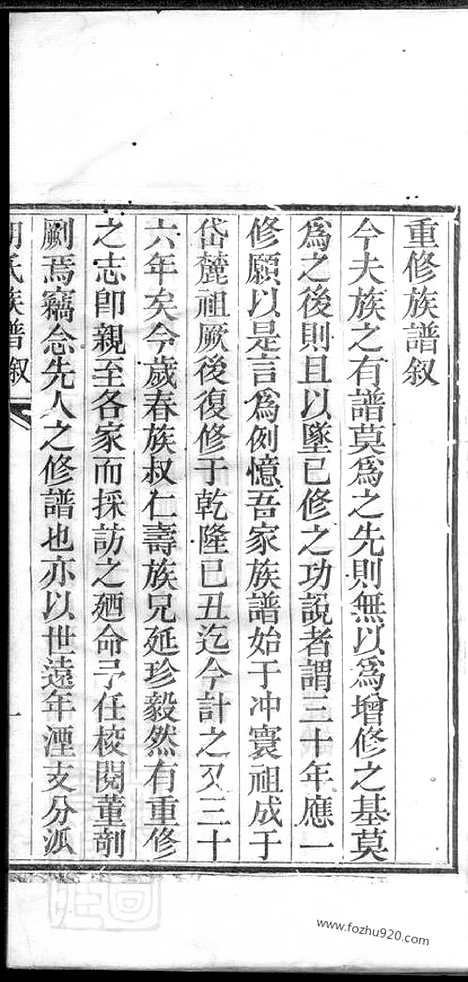 重修族譜叙
今夫族之有譜莫爲之先則無以爲增修之基莫
爲之後則且以墜已修之功說者謂三十年應一
修願以是言爲例憶吾家族譜始于冲寰祖成于
岱麓祖厥後復修于乾隆已丑迄今計之又三十
六年矣今歲春族叔仁壽族兄延珍毅然有重修
之志即親至各家而採訪之廼命予任校閱董剞
劂焉竊念先人之修譜也亦以世遠年湮支分泒
氏族譜叙
一
www.fozhu920.com